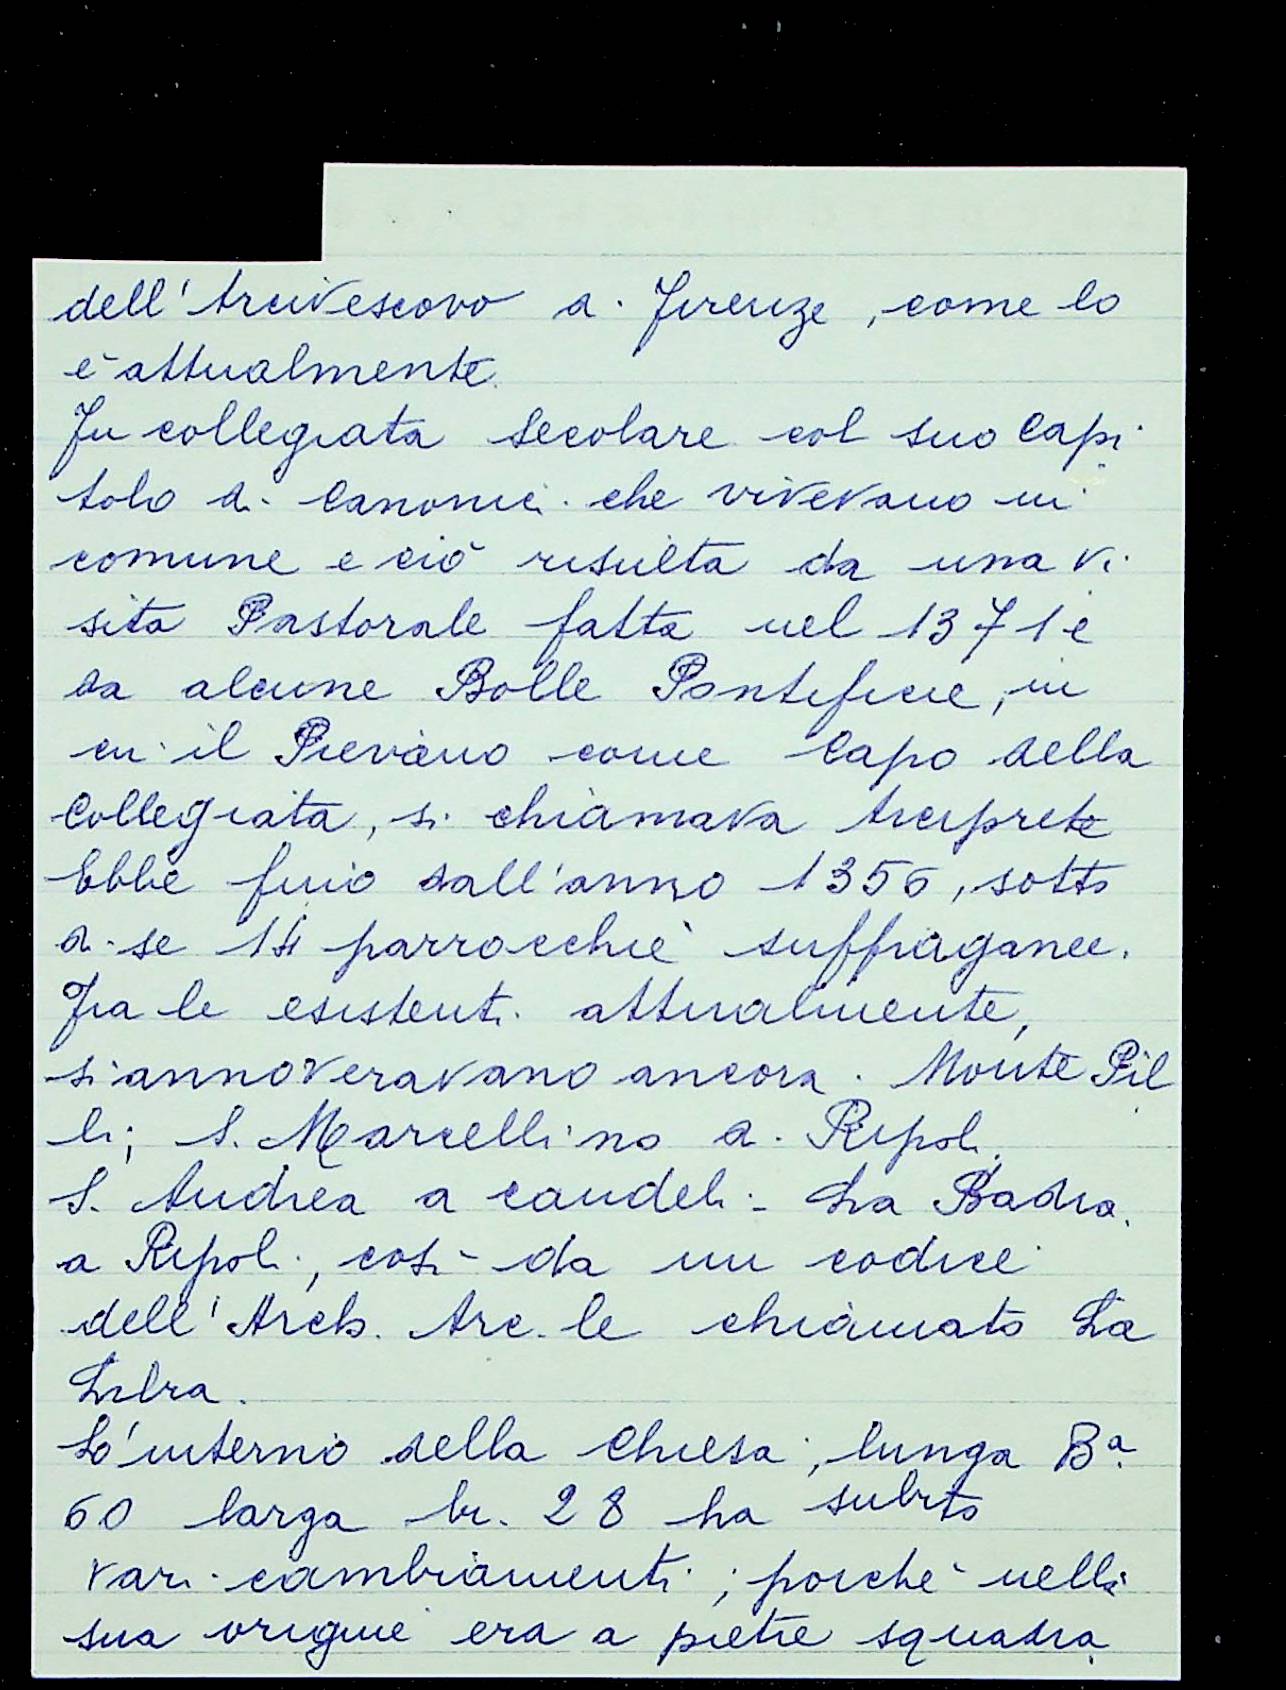 dell'Arcivescovo di Firenze, come lo
è attualmente.
Fu collegiata Secolare col suo Capi
tolo di Canonici che vivevano in
comune e ciò risulta da una Vi
sita Pastorale fatta nel 1371 e
da alcune Bolle Pontificie, in
cui il Pievano come Capo della
Collegiata, si chiamava Arciprete
Ebbe fino dall'anno 1356, sotto
di se 14 parrocchie suffraganee.
Fra le esistenti attualmente,
si annoveravano ancora. Monte Pil
li; S. Marcellino a Ripoli.
S. Andrea a Candeli - La Badia
a Ripoli, così da un codice
dell'Arch. Arc.le chiamato La
Libra.
L'interno della Chiesa, lunga Bª
60 larga br. 28 ha subito
vari cambiamenti; poiché nella
sua origine era a pietre squadra